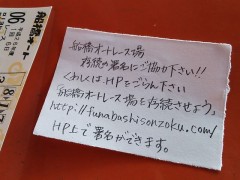 船橋オート
06
船橋オートレース場
存続の署名にご協力下さい!!
くわしくはHPをごらん下さい
「船橋オートレース場を存続させよう」
http://funabashisonzoku.com/
HP上で署名ができます。